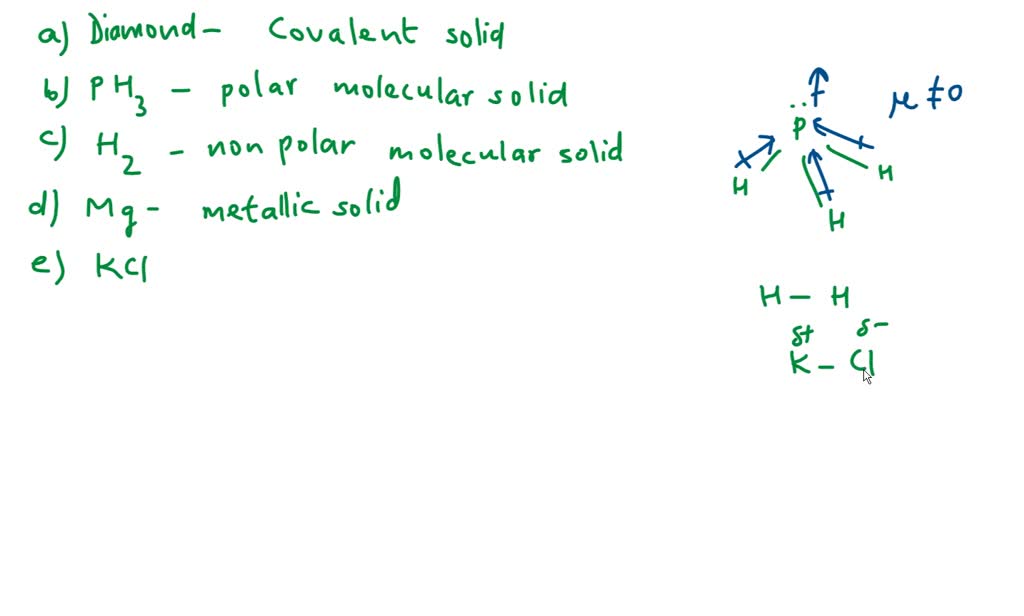 a) Diamond - Covalent solid
b) PH3 - polar molecular solid
c) H2 - non polar molecular solid
d) Mg - metallic solid
e) KCl
μ ≠ 0
P
H
H
H
H - H
δ+ δ-
K - Cl